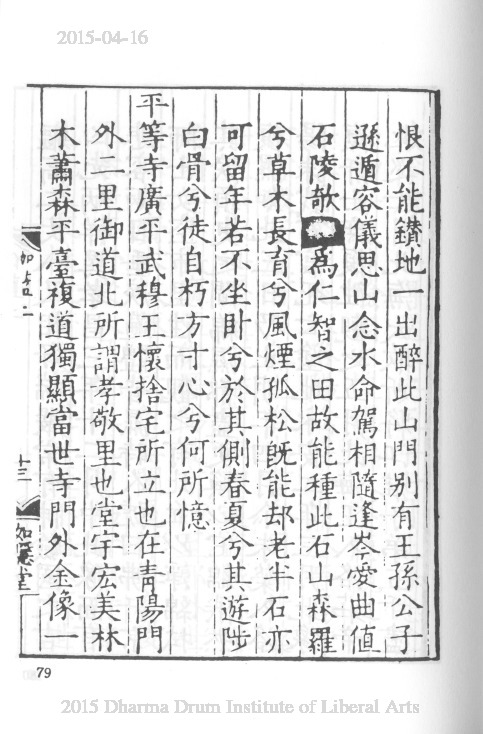 2015-04-16
恨不能鑚地一出醉此山門别有王孫公子
遜遁容儀思山念水命駕相隨逢岑愛曲值
石陵欹爲仁智之田故能種此石山森羅
兮草木長育兮風煙孤松旣能却老半石亦
可留年若不坐卧兮於其側春夏兮其遊陟
白骨兮徒自朽方寸心兮何所憶
平等寺廣平武穆王懷捨宅所立也在青陽門
外二里御道北所謂孝敬里也堂宇宏美林
木蕭森平臺複道獨顯當世寺門外金像一
十三
如隱堂
79
2015 Dharma Drum Institute of Liberal Arts